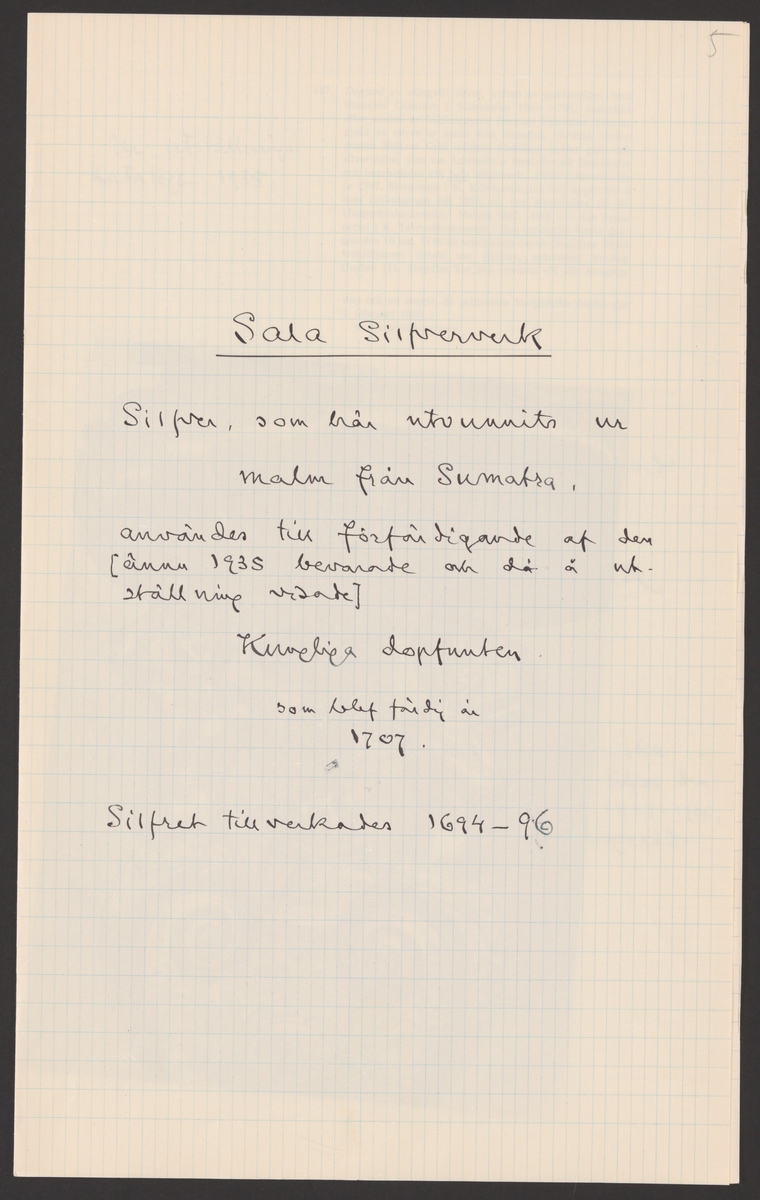 5
Sala Silfververk
Silfver, som här utvunnits ur
malm från Sumatra,
användes till förfärdigande af den
[ännu 1935 bevarade och då å ut-
ställning visade]
Kungliga dopfunten
som blef färdig år
1707.
Silfret tillverkades 1694-96